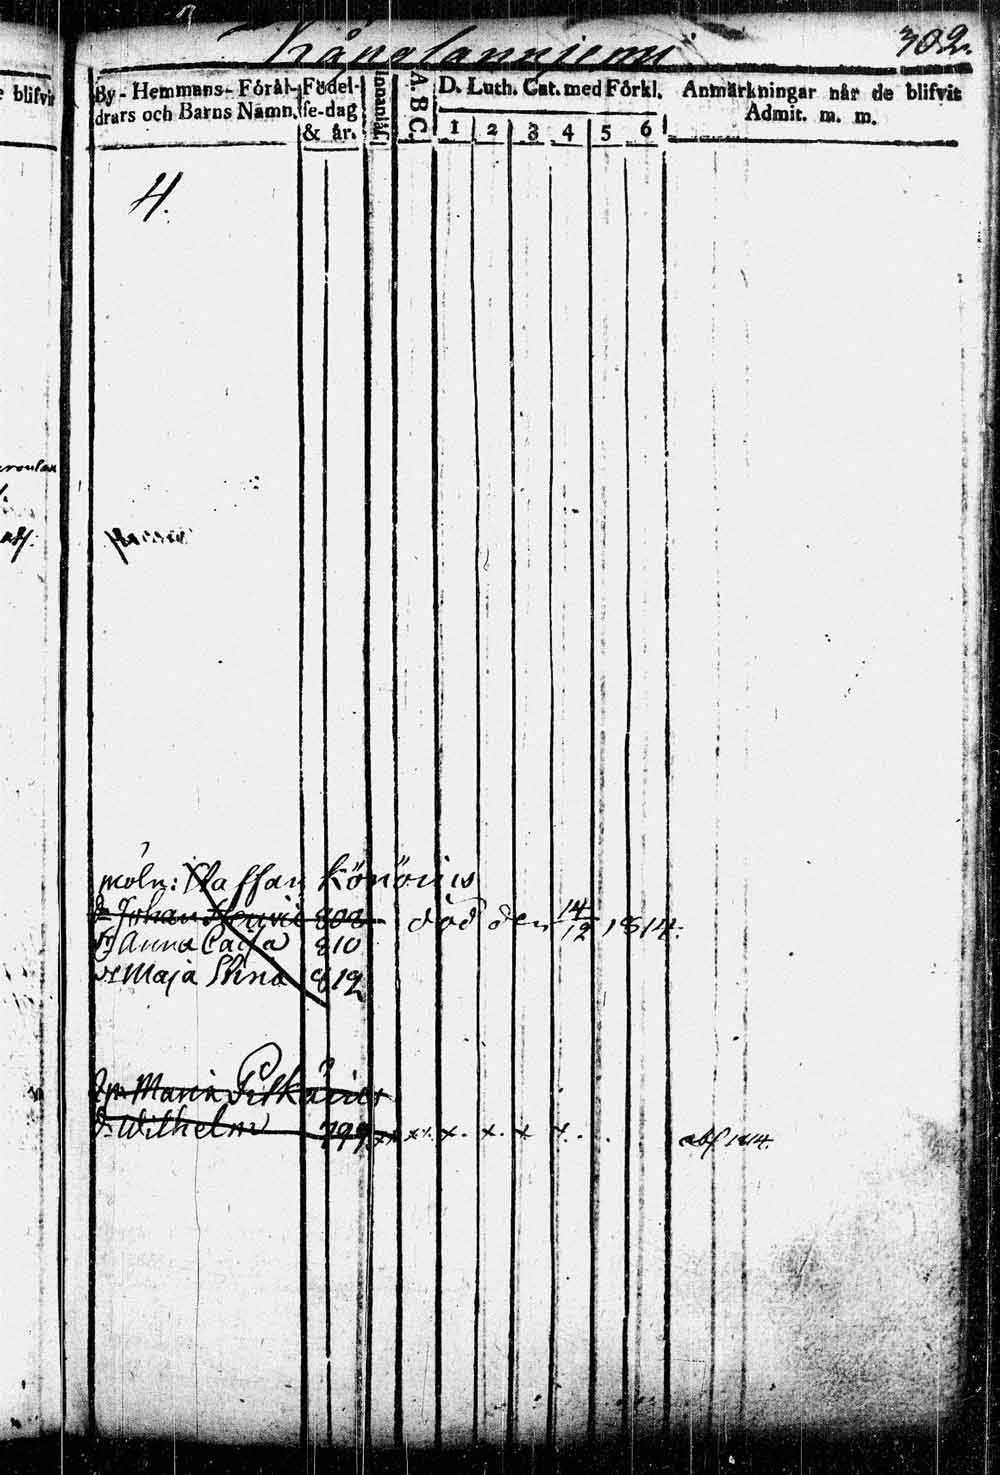 Kångolanniemi 302.
e blifvit
By-Hemmans-Förål-
drars och Barns Namn.
Födel-
se-dag
& år.
Innanläs.
A. B C.
D. Luth. Cat. med Förkl.
1 2 3 4 5 6
Anmärkningar når de blifvit
Admit. m. m.
4.
möln: Staffan Könönius
Johan Henric 808 död den 14/12 1814.
Anna Caisa 810
Maja Stina 812
Maria Pitkänier
d. Wilhelm 799 abf 1814.